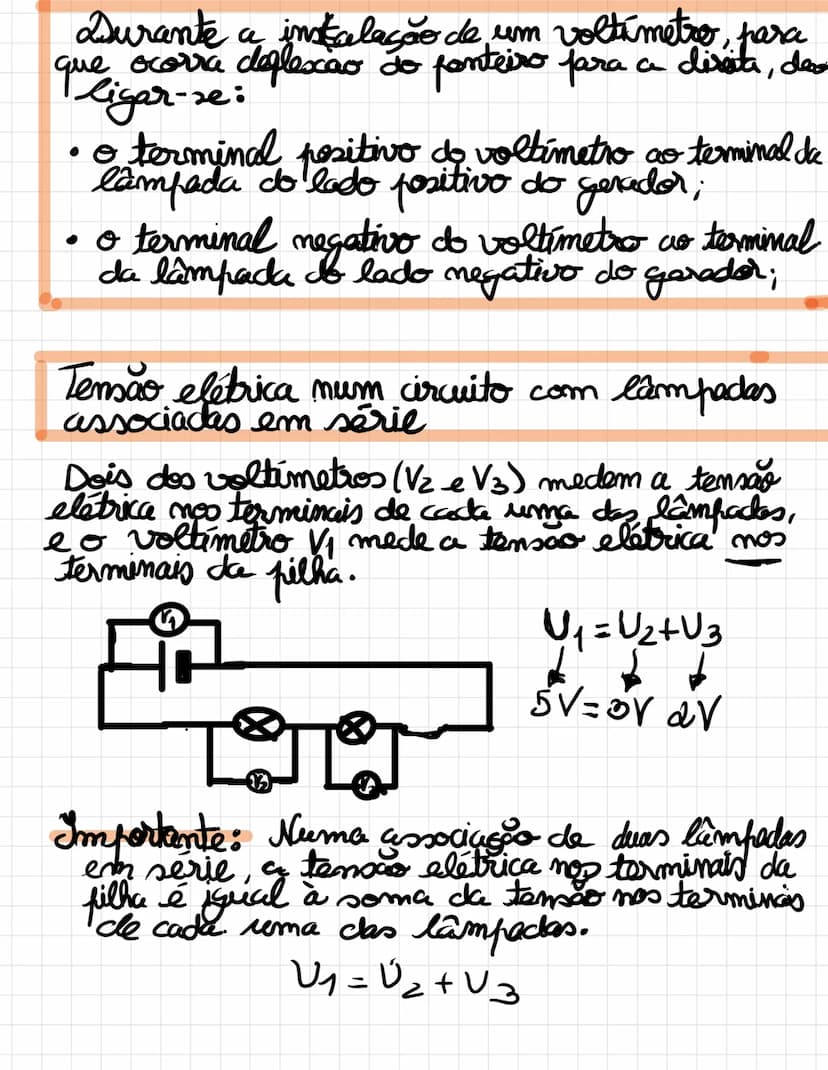 Durante a instalação de um voltímetro, para
que ocorra deflexão do ponteiro para a direita, deve
ligar-se:
• o terminal positivo do voltímetro ao terminal da
lâmpada do lado positivo do gerador;
• o terminal negativo do voltímetro ao terminal
da lâmpada do lado negativo do gerador;
Tensão elétrica num circuito com lâmpadas
associadas em série
Dois dos voltímetros (V2 e V3) medem a tensão
elétrica nos terminais de cada uma das lâmpadas,
e o voltímetro V1 mede a tensão elétrica nos
terminais da pilha.
V1
U1 = U2 + U3
5V = 3V 2V
V2
Importante: Numa associação de duas lâmpadas
em série, a tensão elétrica nos terminais da
pilha é igual à soma da tensão nos terminais
de cada uma das lâmpadas.
U1 = U2 + U3